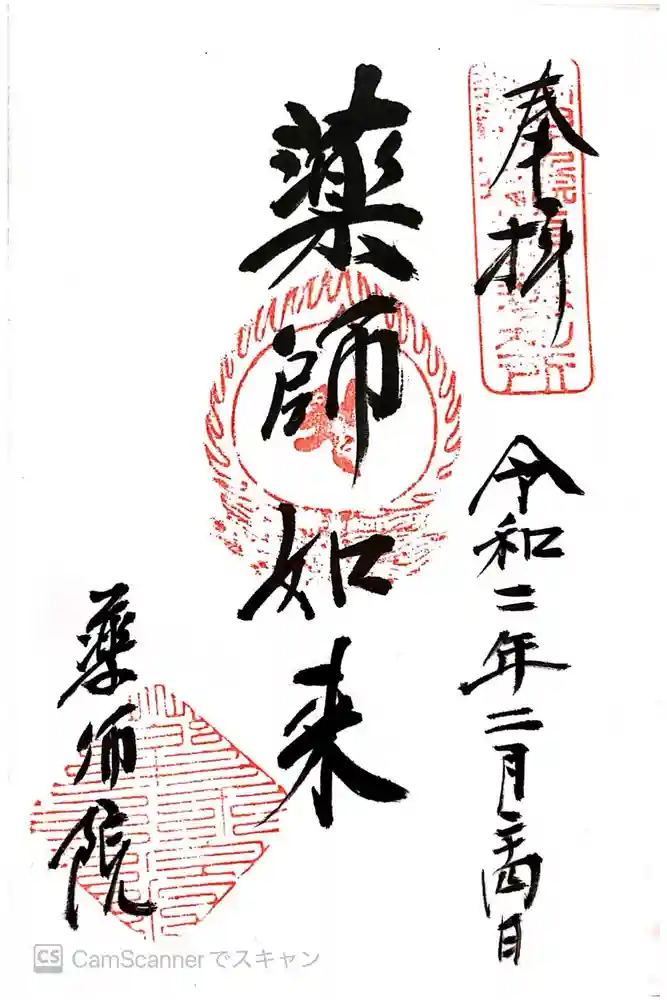 奉拝
令和二年二月二十四日
薬師如来
薬師院
CS CamScannerでスキャン